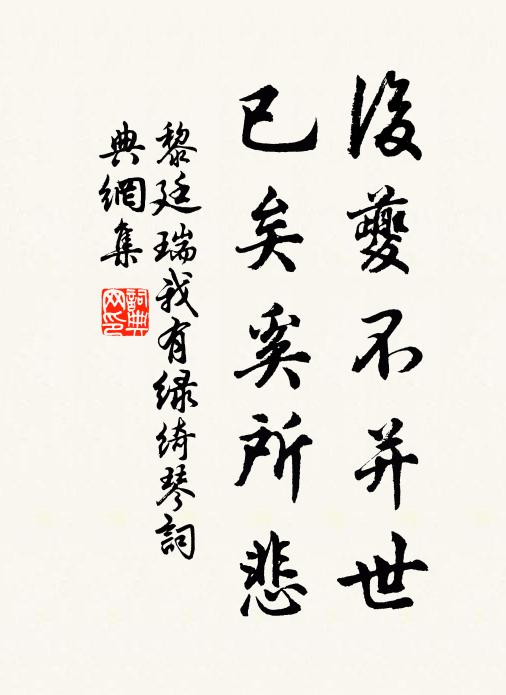 後夔不并世
已矣奚所悲
黎廷瑞我有緑綺琴詞
典網集
詞典
网印